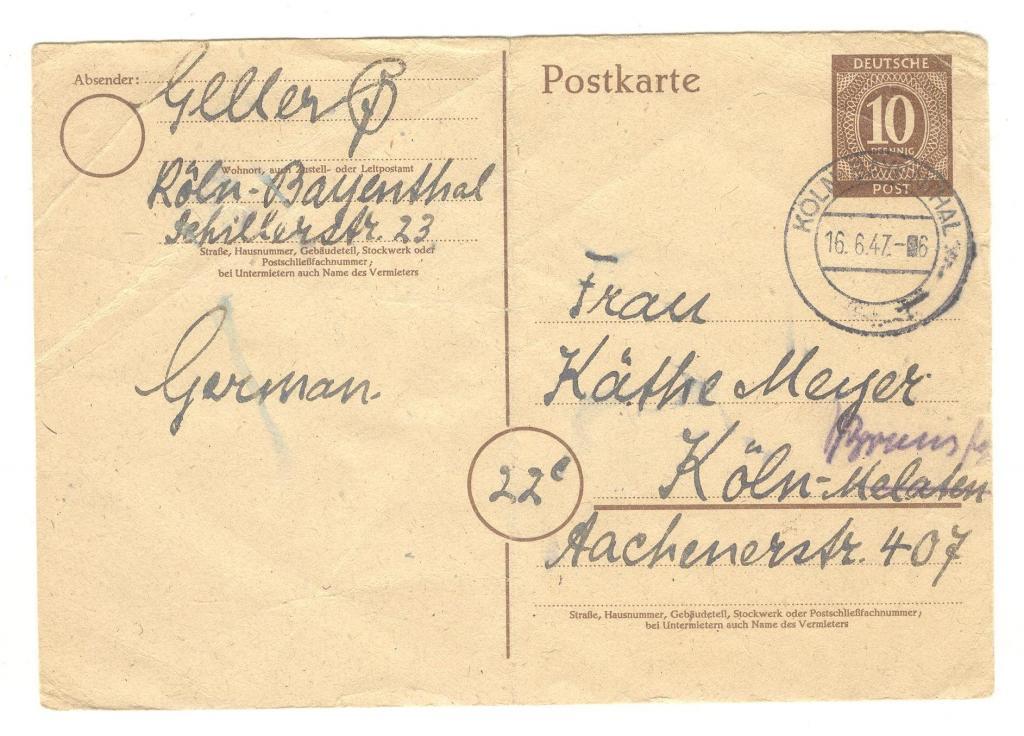 Absender:
Geller
Wohnort, auch Zustell- oder Leitpostamt
Köln-Bayenthal
Schillerstr. 23
Straße, Hausnummer, Gebäudeteil, Stockwerk oder
Postschließfachnummer;
bei Untermietern auch Name des Vermieters
German.
Postkarte
DEUTSCHE
10
PFENNIG
POST
KÖLN THAL
16.6.47.- 6
Frau
Käthe Meyer
Köln-Melaten
22c
Aachenerstr. 407
Straße, Hausnummer, Gebäudeteil, Stockwerk oder Postschließfachnummer;
bei Untermietern auch Name des Vermieters